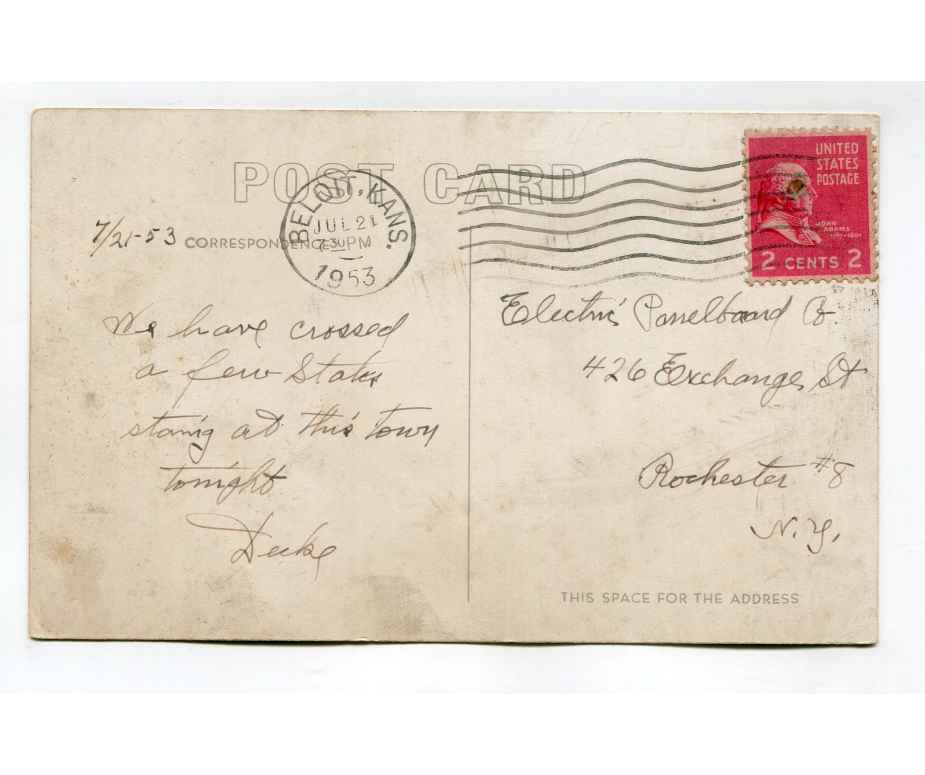 POST CARD
BELOIT, KANS.
JUL 21
7 30 PM
1953
UNITED
STATES
POSTAGE
JOHN
ADAMS
1797-1801
2 CENTS 2
7/21-53
CORRESPONDENCE
We have crossed
a few States
stanig at this town
tonight
Duke
Electric Panelboard Co.
426 Exchange St
Rochester #8
N.Y.
THIS SPACE FOR THE ADDRESS